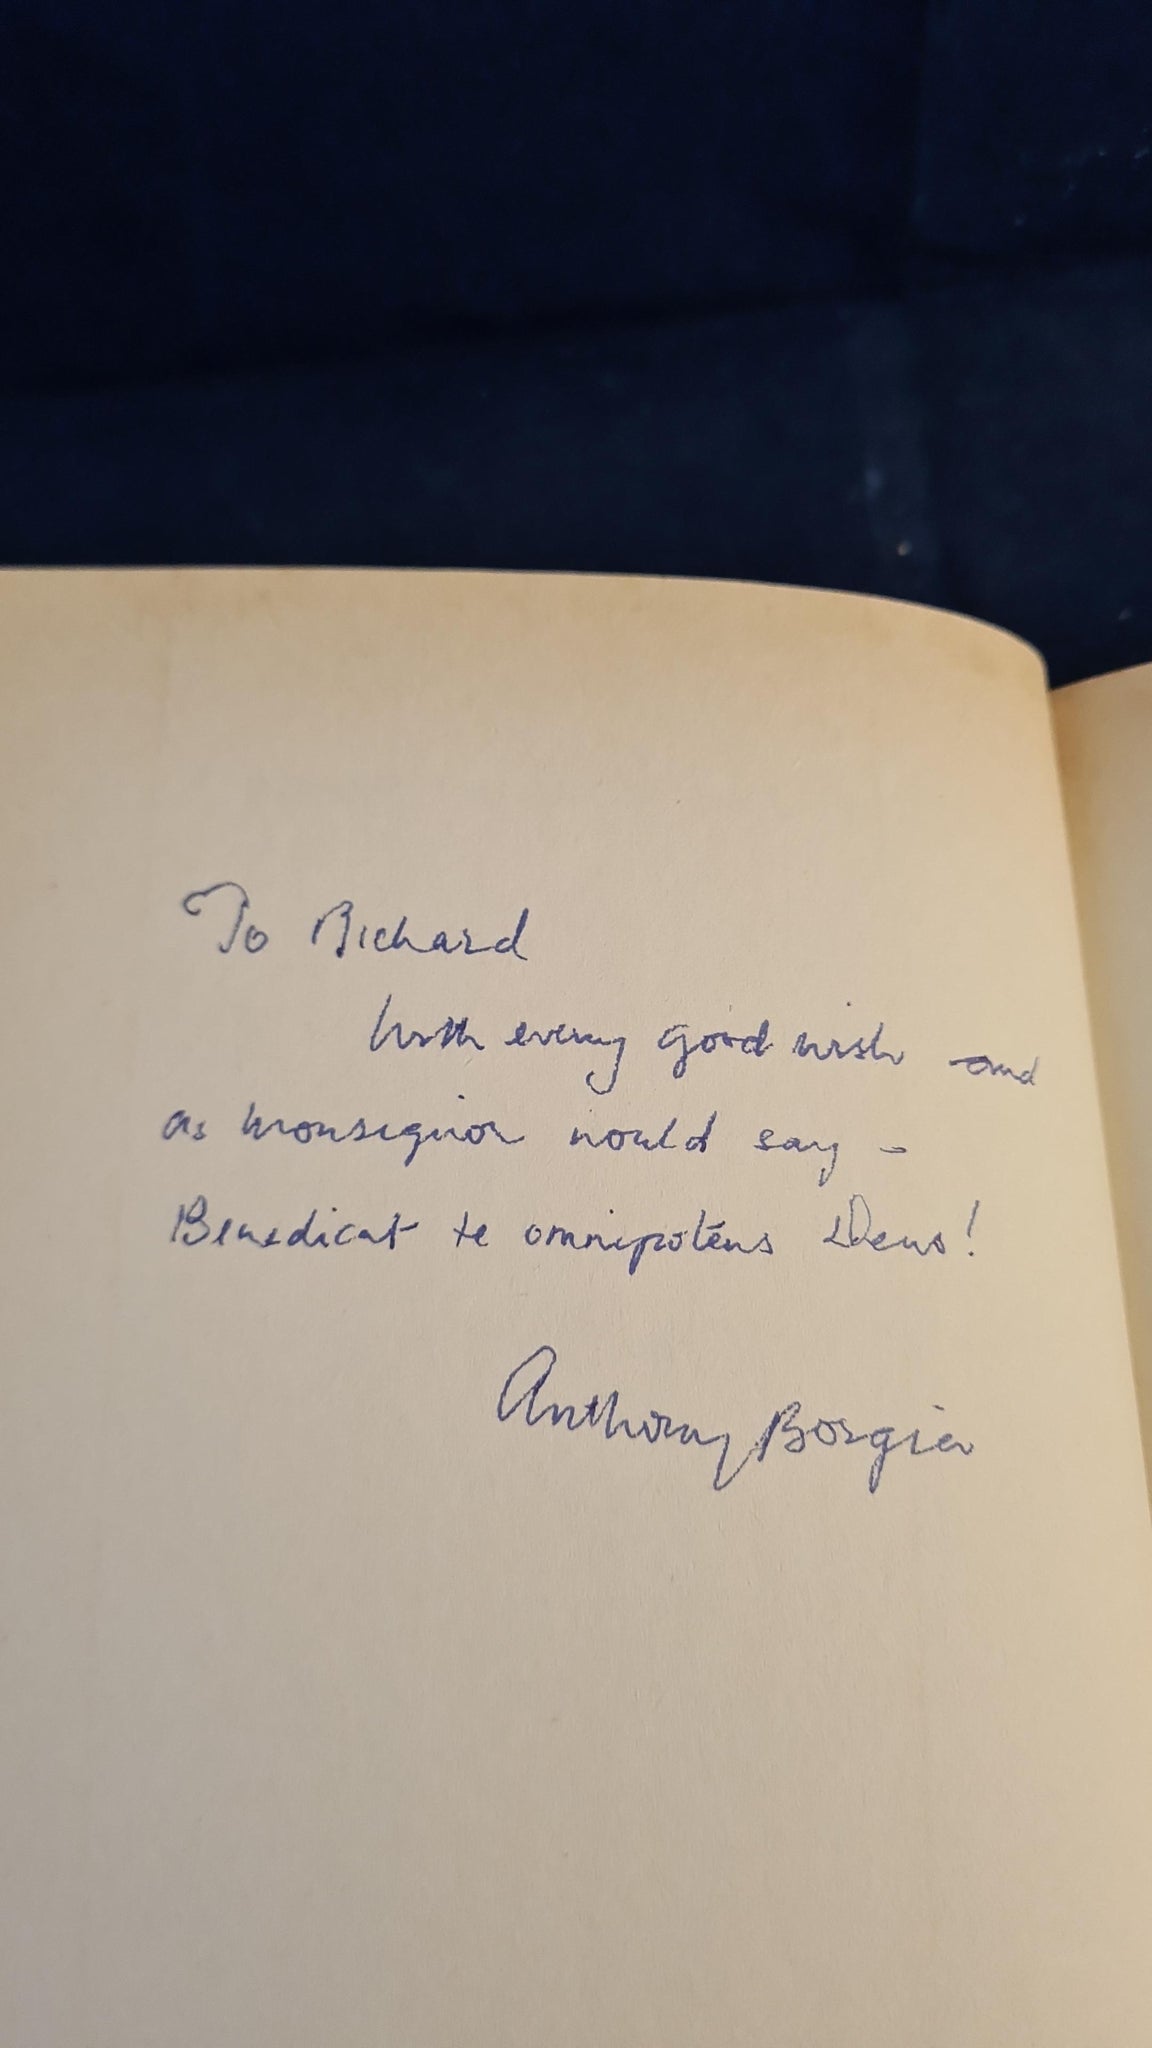 To Richard
With every good wish and
as Monsignor would say -
Benedicat te omnipotens Deus!
Anthony Borgia